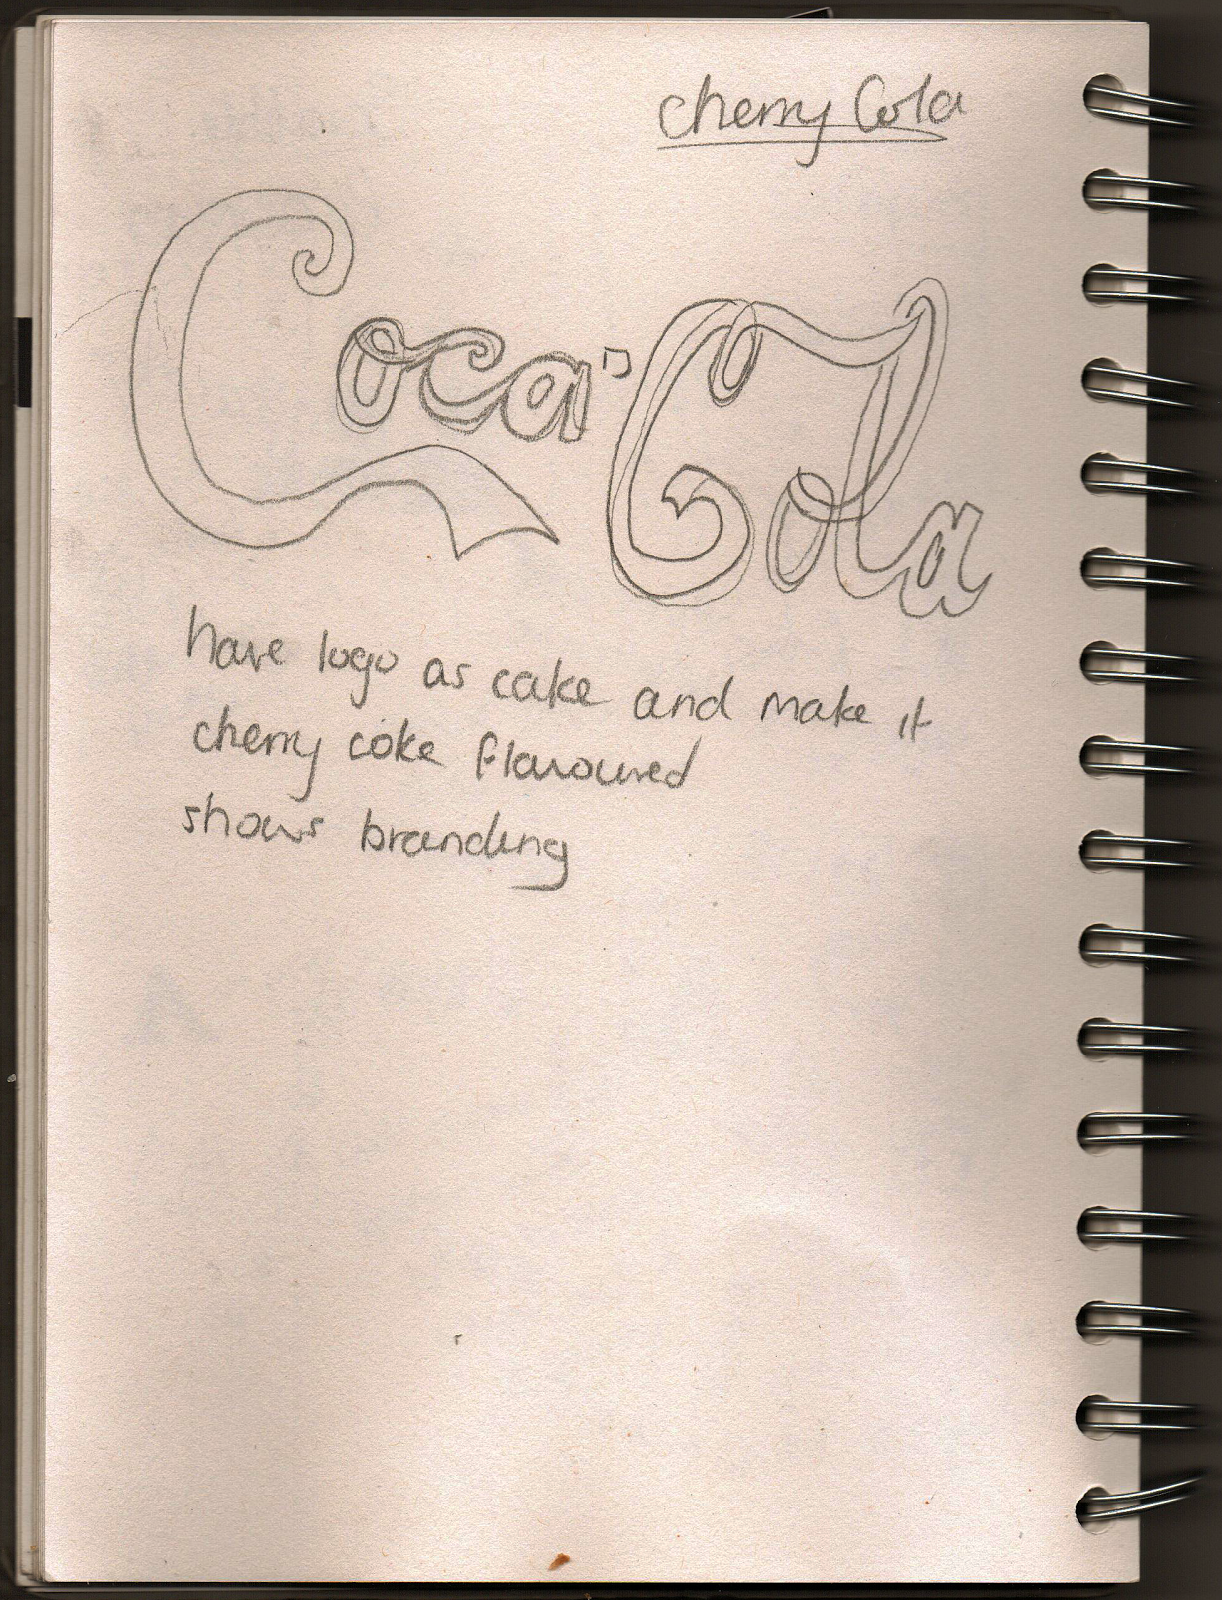 Cherry Cola
Coca-Cola
have logo as cake and make it
cherry coke flavoured
shows branding